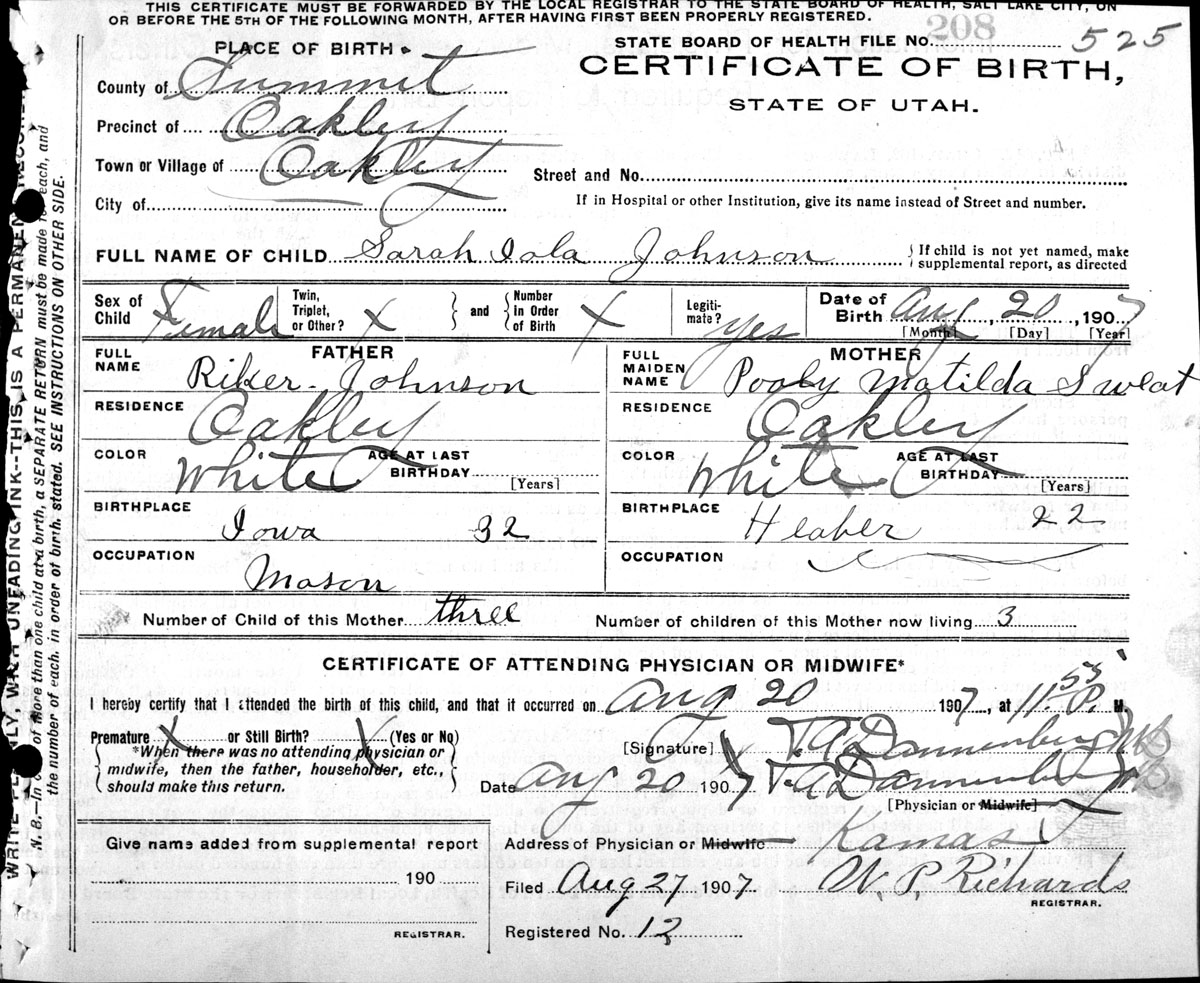 THIS CERTIFICATE MUST BE FORWARDED BY THE LOCAL REGISTRAR TO THE STATE BOARD OF HEALTH, SALT LAKE CITY, ON
OR BEFORE THE 5TH OF THE FOLLOWING MONTH, AFTER HAVING FIRST BEEN PROPERLY REGISTERED.
208
PLACE OF BIRTH
STATE BOARD OF HEALTH FILE NO. 525
CERTIFICATE OF BIRTH,
STATE OF UTAH.
County of Summit
Precinct of Oakley
Town or Village of Oakley
Street and No.
City of
If in Hospital or other Institution, give its name instead of Street and number.
FULL NAME OF CHILD Sarah Iola Johnson { If child is not yet named, make
supplemental report, as directed
Sex of Child Female
Twin, Triplet, or Other? X } and { Number in Order of Birth X
Legiti-mate? yes
Date of Birth Aug, 20, 1907
[Month] [Day] [Year]
FATHER
FULL NAME Riker Johnson
MOTHER
FULL MAIDEN NAME Pooly Matilda Sweat
RESIDENCE Oakley
RESIDENCE Oakley
COLOR White AGE AT LAST BIRTHDAY [Years]
COLOR White AGE AT LAST BIRTHDAY [Years]
BIRTHPLACE Iowa 32
BIRTHPLACE Heaber 22
OCCUPATION Mason
OCCUPATION
Number of Child of this Mother three
Number of children of this Mother now living 3
CERTIFICATE OF ATTENDING PHYSICIAN OR MIDWIFE*
I hereby certify that I attended the birth of this child, and that it occurred on Aug 20 1907, at 11.55 P. M.
Premature X or Still Birth? X (Yes or No)
{ *When there was no attending physician or
midwife, then the father, householder, etc.,
should make this return. }
[Signature] T. A. Dannenberg MD
Date Aug 20 1907 T. A. Dannenberg MD
[Physician or Midwife]
Give name added from supplemental report
190
REGISTRAR.
Address of Physician or Midwife Kamas
Filed Aug 27 1907 W. P. Richards
REGISTRAR.
Registered No. 12
WRITE PLAINLY, WITH UNFADING INK--THIS IS A PERMANENT RECORD
N. B.—In case of more than one child at a birth, a SEPARATE RETURN must be made for each, and
the number of each, in order of birth, stated. SEE INSTRUCTIONS ON OTHER SIDE.